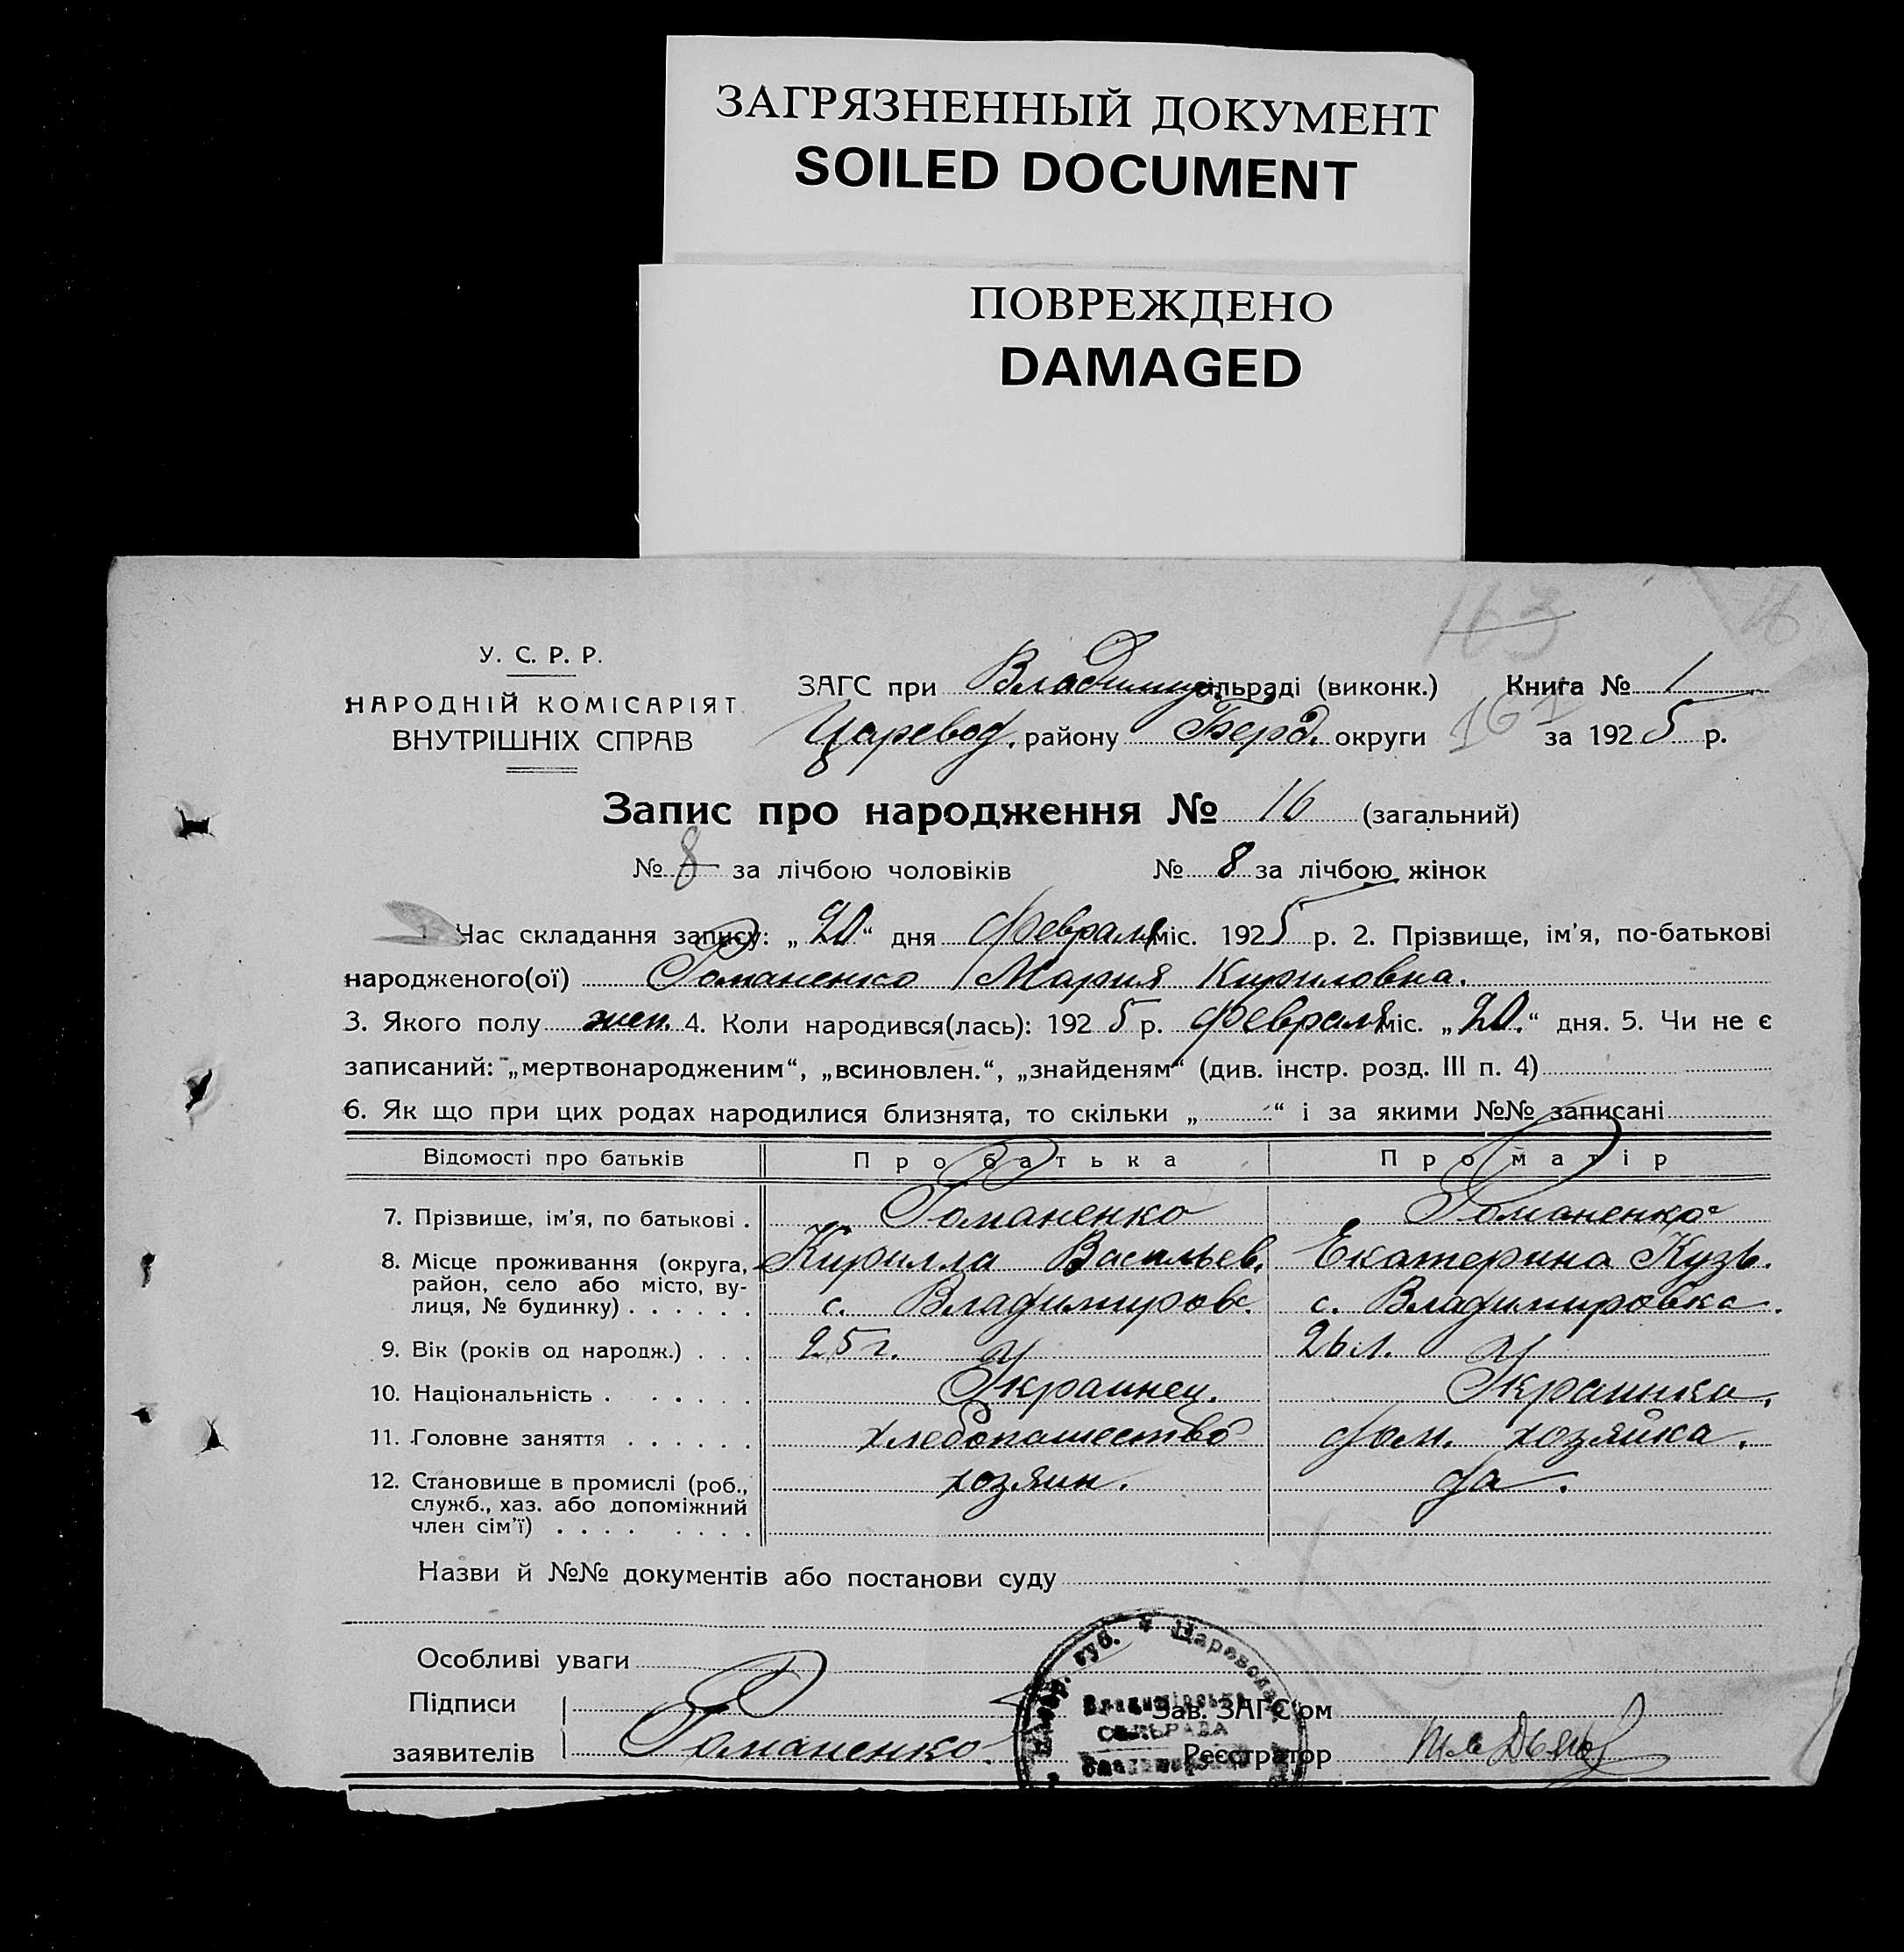 ЗАГРЯЗНЕННЫЙ ДОКУМЕНТ
SOILED DOCUMENT
ПОВРЕЖДЕНО
DAMAGED
163
16
У. С. Р. Р.
НАРОДНІЙ КОМІСАРІЯТ
ВНУТРІШНІХ СПРАВ
ЗАГС при Владимир. сільраді (виконк.) Книга № 1
Царевод. району Берд. округи 161 за 1925 р.
Запис про народження № 16 (загальний)
№ 8 за лічбою чоловіків № 8 за лічбою жінок
1. Час складання запису: „20“ дня февраля міс. 1925 р. 2. Прізвище, ім'я, по-батькові
народженого(ої) Романенко Мария Кириловна.
3. Якого полу жен. 4. Коли народився(лась): 1925 р. февраля міс. „20.“ дня. 5. Чи не є
записаний: „мертвонародженим“, „всиновлен.“, „знайденям“ (див. інстр. розд. III п. 4)
6. Як що при цих родах народилися близнята, то скільки „ “ і за якими №№ записані
Відомості про батьків Про батька Про матір
7. Прізвище, ім'я, по батькові . Романенко Романенко
8. Місце проживання (округа, Кирилла Васильев. Екатерина Кузь.
район, село або місто, ву-
лиця, № будинку) . . . . . . с. Владимиров. с. Владимировка.
9. Вік (років од народж.) . . . 25 г. 26 л.
10. Національність . . . . . . Украинец. Украинка.
11. Головне заняття . . . . . . хлебопашество дом. хозяйка.
12. Становище в промислі (роб., хозяин. да.
служб., хаз. або допоміжний
член сім'ї) . . . . . . . .
Назви й №№ документів або постанови суду
Особливі уваги
Підписи
заявителів Романенко.
губ. * Царевода
СІЛЬРАДА
Зав. ЗАГС'ом
Реєстратор